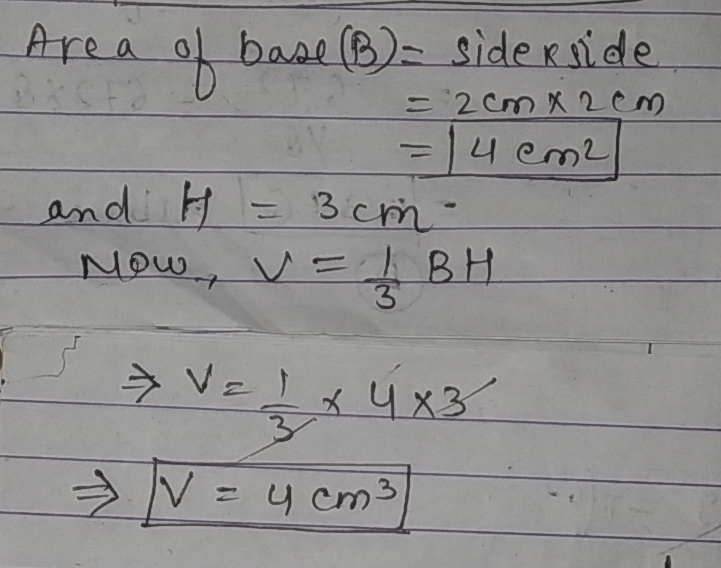 Area of base(B)= side x side
= 2cm x 2cm
= 4 cm²
and H = 3 cm.
Now, V = 1/3 BH
⇒ V = 1/3 x 4 x 3
⇒ V = 4 cm³